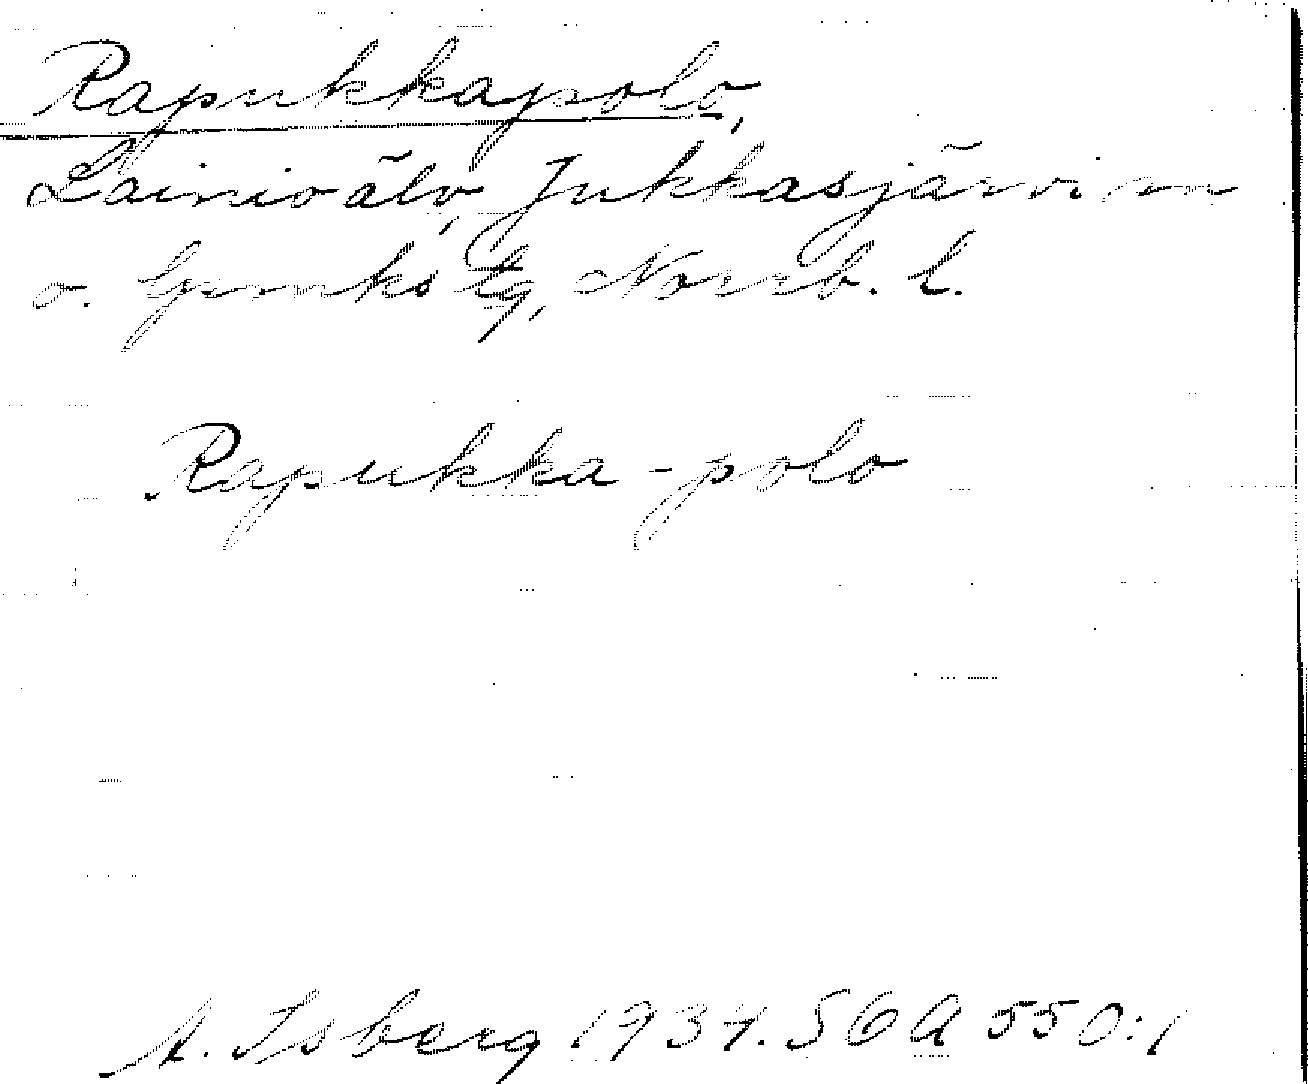 Rapukkapolo,
Lainioälv, Jukkasjärvi sn
o. lpmks tg, Norrb. l.
Rapukka-polo
A. Isberg 1937. SOA 550:1